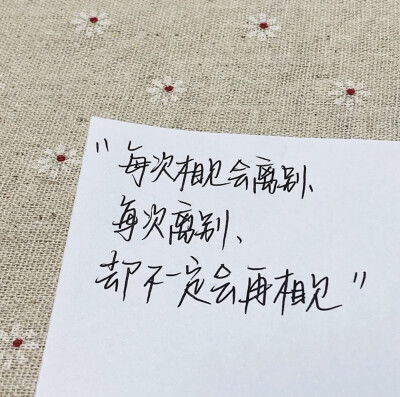 "每次相见会离别、
每次离别、
却不一定会再相见"